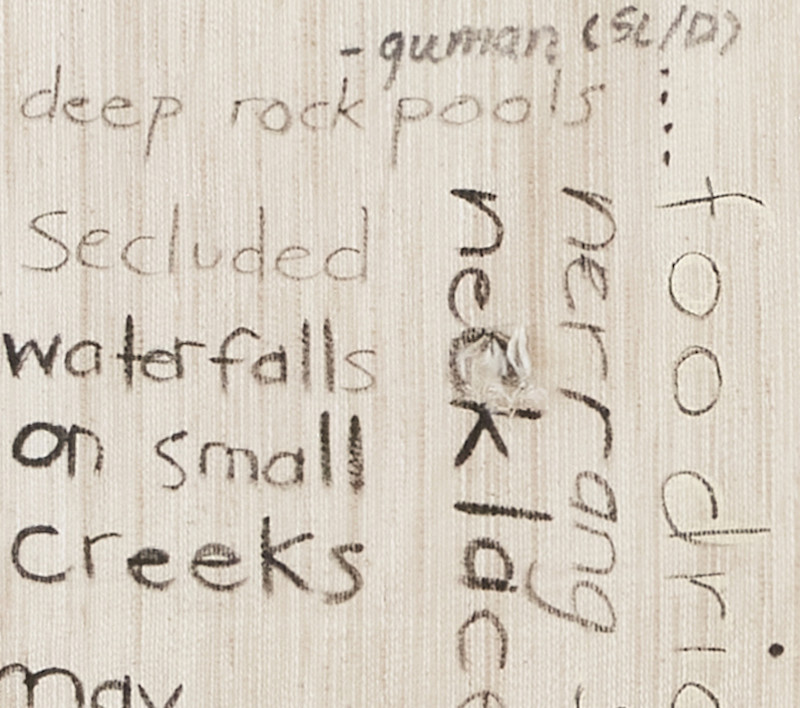 -guman (SL/D)
deep rock pools
Secluded
waterfalls
on small
creeks
may
necklace
nerrang
food